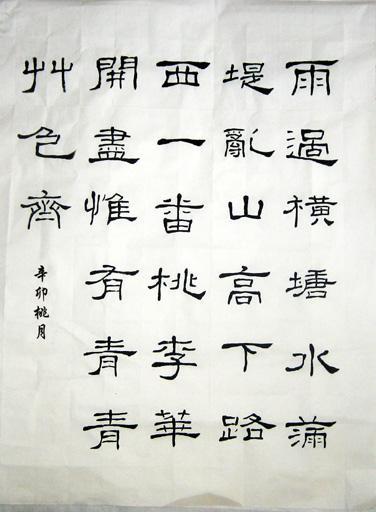 雨過橫塘水滿
堤亂山高下路
西一番桃李華
開盡惟有青青
艸色齊
辛卯桃月